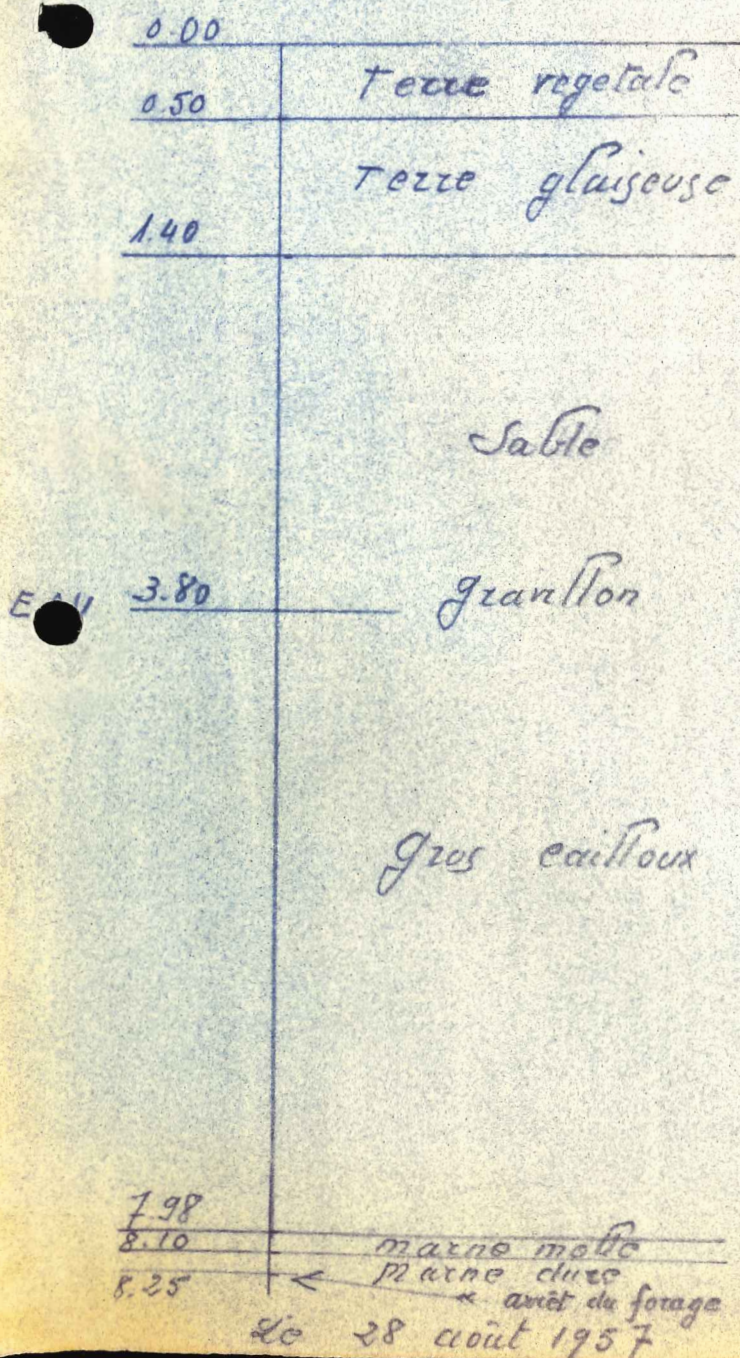 0.00
Terre vegetale
0.50
Terre glaiseuse
1.40
Sable
EAU 3.80 granllon
gros cailloux
7.98
8.10 marne molle
marne dure
8.25
arrêt du forage
Le 28 août 1957